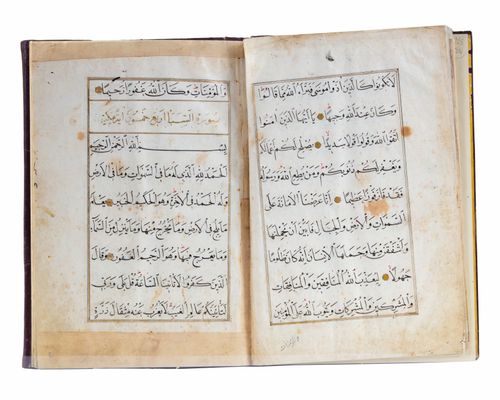 لا تكونوا كالذين آذوا موسى فبرأه الله مما قالوا
وكان عند الله وجيها يا أيها الذين آمنوا
اتقوا الله وقولوا قولا سديدا يصلح لكم أعمالكم
ويغفر لكم ذنوبكم ومن يطع الله ورسوله
فقد فاز فوزا عظيما إنا عرضنا الأمانة على
السموات والأرض والجبال فأبين أن يحملنها
وأشفقن منها وحملها الإنسان إنه كان ظلوما
جهولا ليعذب الله المنافقين والمنافقات
والمشركين والمشركات ويتوب الله على المؤمنين
والمؤمنات وكان الله غفورا رحيما
سورة السبا اربع خمسون آية مكية
بسم الله الرحمن الرحيم
الحمد لله الذي له ما في السموات وما في الأرض
وله الحمد في الآخرة وهو الحكيم الخبير يعلم
ما يلج في الأرض وما يخرج منها وما ينزل من السماء
وما يعرج فيها وهو الرحيم الغفور وقال
الذين كفروا لا تأتينا الساعة قل بلى وربي
لتأتينكم عالم الغيب لا يعزب عنه مثقال ذرة